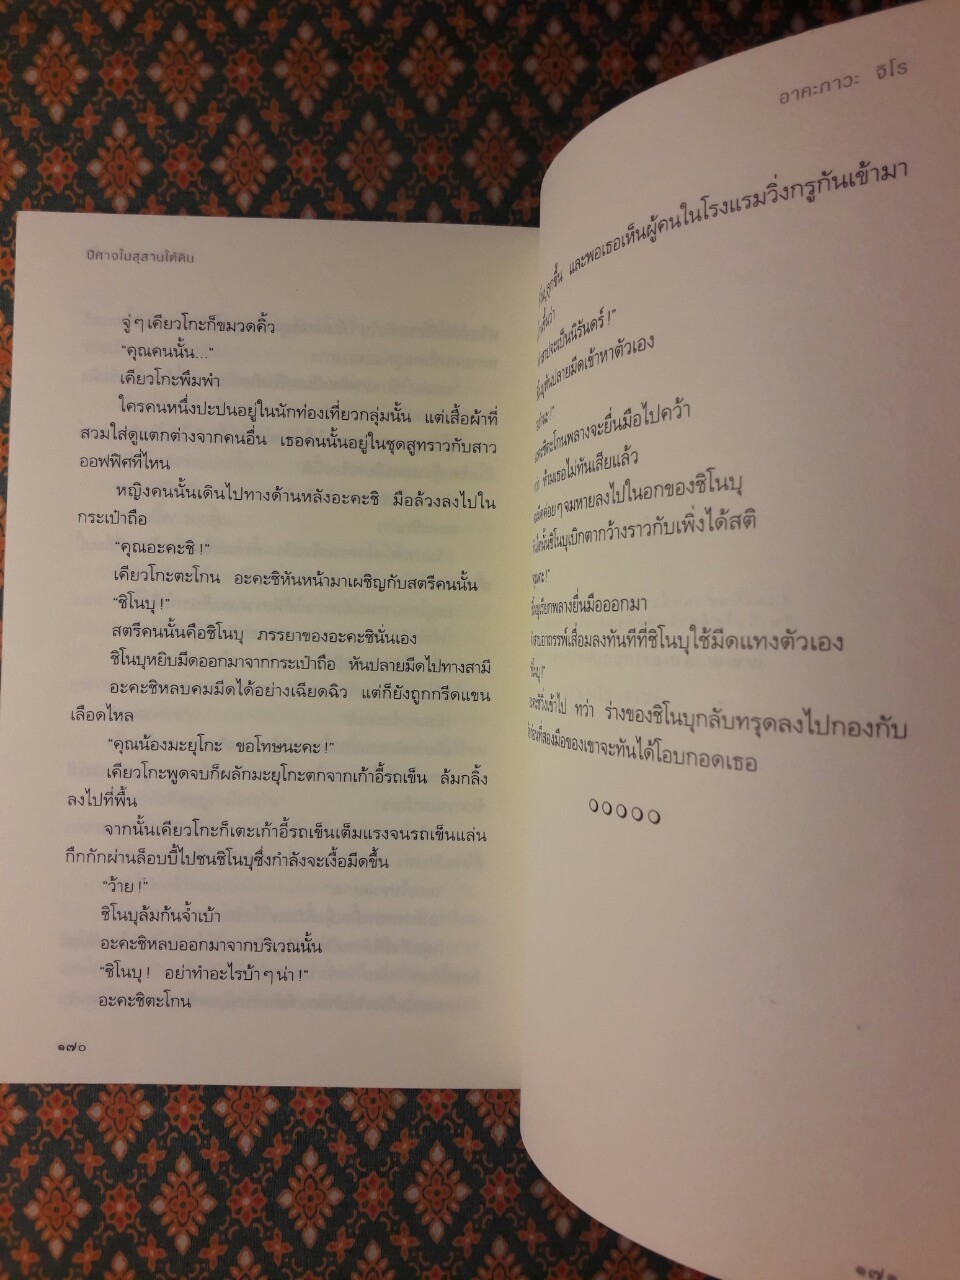 ปีศาจในสุสานใต้ดิน
จู่ๆ เคียวโกะก็ขมวดคิ้ว
“คุณคนนั้น...”
เคียวโกะพึมพำ
ใครคนหนึ่งปะปนอยู่ในนักท่องเที่ยวกลุ่มนั้น แต่เสื้อผ้าที่
สวมใส่ดูแตกต่างจากคนอื่น เธอคนนั้นอยู่ในชุดสูทราวกับสาว
ออฟฟิศที่ไหน
หญิงคนนั้นเดินไปทางด้านหลังอะคะชิ มือล้วงลงไปใน
กระเป๋าถือ
“คุณอะคะชิ !”
เคียวโกะตะโกน อะคะชิหันหน้ามาเผชิญกับสตรีคนนั้น
“ชิโนบุ !”
สตรีคนนั้นคือชิโนบุ ภรรยาของอะคะชินั่นเอง
ชิโนบุหยิบมีดออกมาจากกระเป๋าถือ หันปลายมีดไปทางสามี
อะคะชิหลบคมมีดได้อย่างเฉียดฉิว แต่ก็ยังถูกกรีดแขน
เลือดไหล
“คุณน้องมะยุโกะ ขอโทษนะคะ !”
เคียวโกะพูดจบก็ผลักมะยุโกะตกจากเก้าอี้รถเข็น ล้มกลิ้ง
ลงไปที่พื้น
จากนั้นเคียวโกะก็เตะเก้าอี้รถเข็นเต็มแรงจนรถเข็นแล่น
กึกกักผ่านล็อบบี้ไปชนชิโนบุซึ่งกำลังจะเงื้อมีดขึ้น
“ว้าย !”
ชิโนบุล้มก้นจ้ำเบ้า
อะคะชิหลบออกมาจากบริเวณนั้น
“ชิโนบุ ! อย่าทำอะไรบ้าๆ น่า !”
อะคะชิตะโกน
๑๗๐
อาคะกาวะ จิโร
และพอเธอเห็นผู้คนในโรงแรมวิ่งกรูกันเข้ามา
จะเป็นนิรันดร์ !”
หันปลายมีดเข้าหาตัวเอง
พลางจะยื่นมือไปคว้า
ห้ามเธอไม่ทันเสียแล้ว
ค่อยๆ จมหายลงไปในอกของชิโนบุ
ชิโนบุเบิกตากว้างราวกับเพิ่งได้สติ
เรียกพลางยื่นมือออกมา
อาถรรพ์เสื่อมลงทันทีที่ชิโนบุใช้มีดแทงตัวเอง
เข้าไป ทว่า ร่างของชิโนบุกลับทรุดลงไปกองกับ
ที่สองมือของเขาจะทันได้โอบกอดเธอ